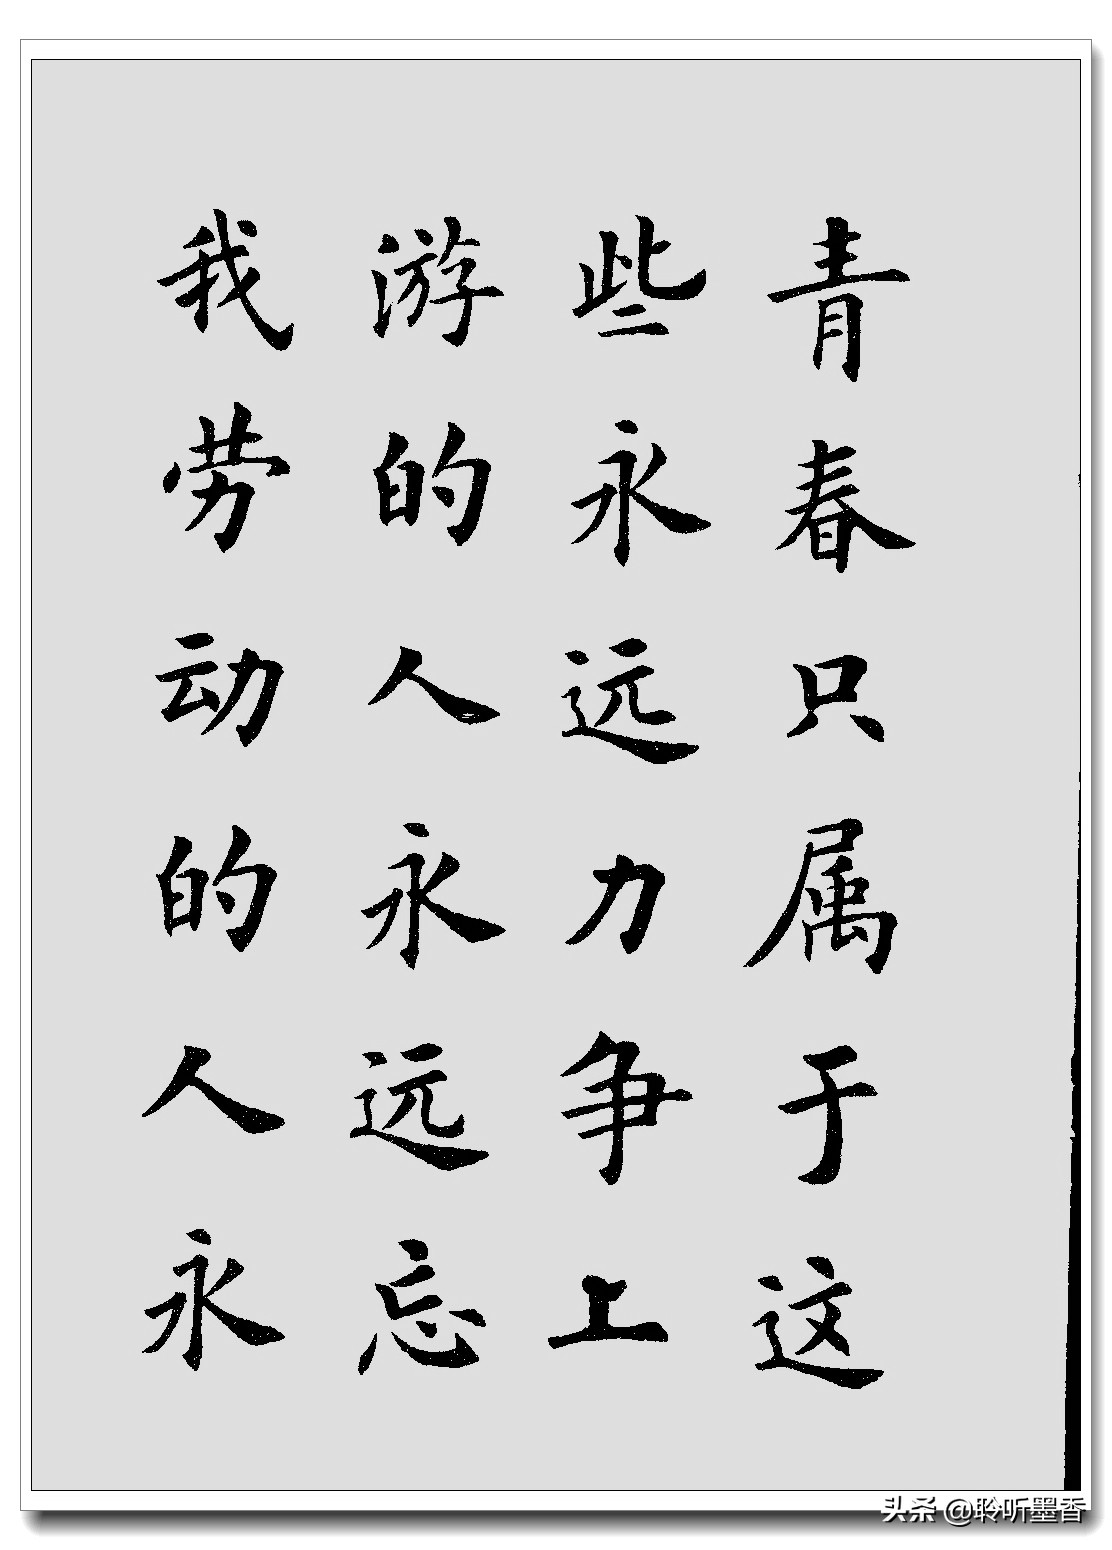 青春只属于这
些永远力争上
游的人永远忘
我劳动的人永
头条 @聆听墨香